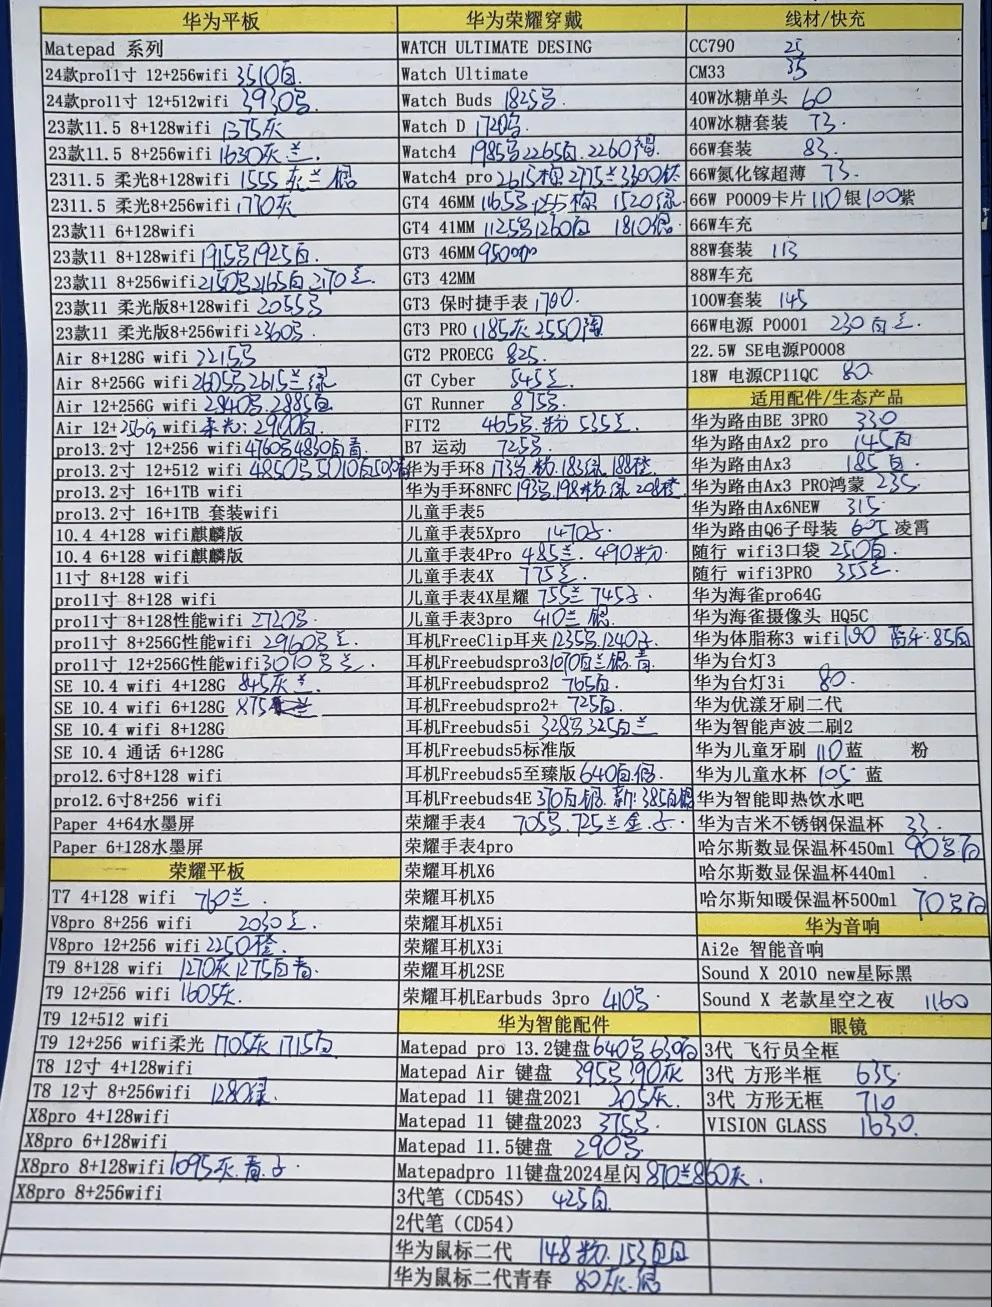 华为平板
Matepad 系列
24款pro11寸 12+256wifi 3510白.
24款pro11寸 12+512wifi 3930号.
23款11.5 8+128wifi 1375灰
23款11.5 8+256wifi 1630灰 兰.
2311.5 柔光8+128wifi 1555 灰兰银
2311.5 柔光8+256wifi 1770灰
23款11 6+128wifi
23款11 8+128wifi 1915号1925白.
23款11 8+256wifi 2150号2165白 2170兰.
23款11 柔光版8+128wifi 2055号
23款11 柔光版8+256wifi 2360号.
Air 8+128G wifi 2215号
Air 8+256G wifi 2605号2615兰绿
Air 12+256G wifi 2840号.2885白
Air 12+256G wifi 柔光:2900白.
pro13.2寸 12+256 wifi 4760号4830白青
pro13.2寸 12+512 wifi 4850号5010白
pro13.2寸 16+1TB wifi
pro13.2寸 16+1TB 套装wifi
10.4 4+128 wifi麒麟版
10.4 6+128 wifi麒麟版
11寸 8+128 wifi
pro11寸 8+128 wifi
pro11寸 8+128性能wifi 2720号.
pro11寸 8+256G性能wifi 2960号兰.
pro11寸 12+256G性能wifi 3010号兰.
SE 10.4 wifi 4+128G 845灰兰
SE 10.4 wifi 6+128G 兰
SE 10.4 wifi 8+128G
SE 10.4 通话 6+128G
pro12.6寸8+128 wifi
pro12.6寸8+256 wifi
Paper 4+64水墨屏
Paper 6+128水墨屏
荣耀平板
T7 4+128 wifi 760兰.
V8pro 8+256 wifi 2030兰.
V8pro 12+256 wifi 2250橙.
T9 8+128 wifi 1270灰1275白青.
T9 12+256 wifi 1605灰.
T9 12+512 wifi
T9 12+256 wifi柔光 1705灰 1715白
T8 12寸 4+128wifi
T8 12寸 8+256wifi 1280绿.
X8pro 4+128wifi
X8pro 6+128wifi
X8pro 8+128wifi 1095灰.青.
X8pro 8+256wifi
华为荣耀穿戴
WATCH ULTIMATE DESING
Watch Ultimate
Watch Buds 1825号.
Watch D 1720号
Watch4 1985号2265白.2260褐.
Watch4 pro 2615棕 2775兰3300钛
GT4 46MM 1165号.1255棕 1520绿.
GT4 41MM 1125号1260白 1810银.
GT3 46MM 950
GT3 42MM
GT3 保时捷手表 1780.
GT3 PRO 1185灰2550陶
GT2 PROECG 825.
GT Cyber 545兰.
GT Runner 875号.
FIT2 465号.粉 535兰.
B7 运动 725号.
华为手环8 173号.粉.183绿.188橙.
华为手环8NFC 193号.198粉.绿 208橙
儿童手表5
儿童手表5Xpro 1470
儿童手表4Pro 485兰. 490粉.
儿童手表4X 775兰.
儿童手表4X星耀 755兰 745
儿童手表3pro 410兰 银.
耳机FreeClip耳夹 1235号.1240
耳机Freebudspro3 1070白兰银.青.
耳机Freebudspro2 765白.
耳机Freebudspro2+ 725白.
耳机Freebuds5i 328号325白兰
耳机Freebuds5标准版
耳机Freebuds5至臻版 640白.银.
耳机Freebuds4E 370白银.新:385白银
荣耀手表4 705号.725兰金.
荣耀手表4pro
荣耀耳机X6
荣耀耳机X5
荣耀耳机X5i
荣耀耳机X3i
荣耀耳机2SE
荣耀耳机Earbuds 3pro 410号.
华为智能配件
Matepad pro 13.2键盘 640号630白
Matepad Air 键盘 395号390灰
Matepad 11 键盘2021 205灰.
Matepad 11 键盘2023 375号.
Matepad 11.5键盘 290号.
Matepadpro 11键盘2024星闪 870兰860灰.
3代笔（CD54S） 425白
2代笔（CD54）
华为鼠标二代 148粉.153白
华为鼠标二代青春 80灰.银
线材/快充
CC790 25
CM33 35
40W冰糖单头 60
40W冰糖套装 73.
66W套装 83.
66W氮化镓超薄 73.
66W P0009卡片 110银100紫
66W车充
88W套装 113
88W车充
100W套装 145
66W电源 P0001 230白兰.
22.5W SE电源P0008
18W 电源CP11QC 80
适用配件/生态产品
华为路由BE 3PRO 330
华为路由Ax2 pro 145白
华为路由Ax3 185白.
华为路由Ax3 PRO鸿蒙 235.
华为路由Ax6NEW 315.
华为路由Q6子母装 605 凌霄
随行 wifi3口袋 250白.
随行 wifi3PRO 355兰.
华为海雀pro64G
华为海雀摄像头 HQ5C
华为体脂称3 wifi 190 蓝牙:85白
华为台灯3
华为台灯3i 80.
华为优漾牙刷二代
华为智能声波二刷2
华为儿童牙刷 110蓝 粉
华为儿童水杯 105 蓝
华为智能即热饮水吧
华为吉米不锈钢保温杯 33.
哈尔斯数显保温杯450ml 90号.白
哈尔斯数显保温杯440ml
哈尔斯知暖保温杯500ml 70号白
华为音响
Ai2e 智能音响
Sound X 2010 new星际黑
Sound X 老款星空之夜 1160
眼镜
3代 飞行员全框
3代 方形半框 635.
3代 方形无框 710
VISION GLASS 1630.